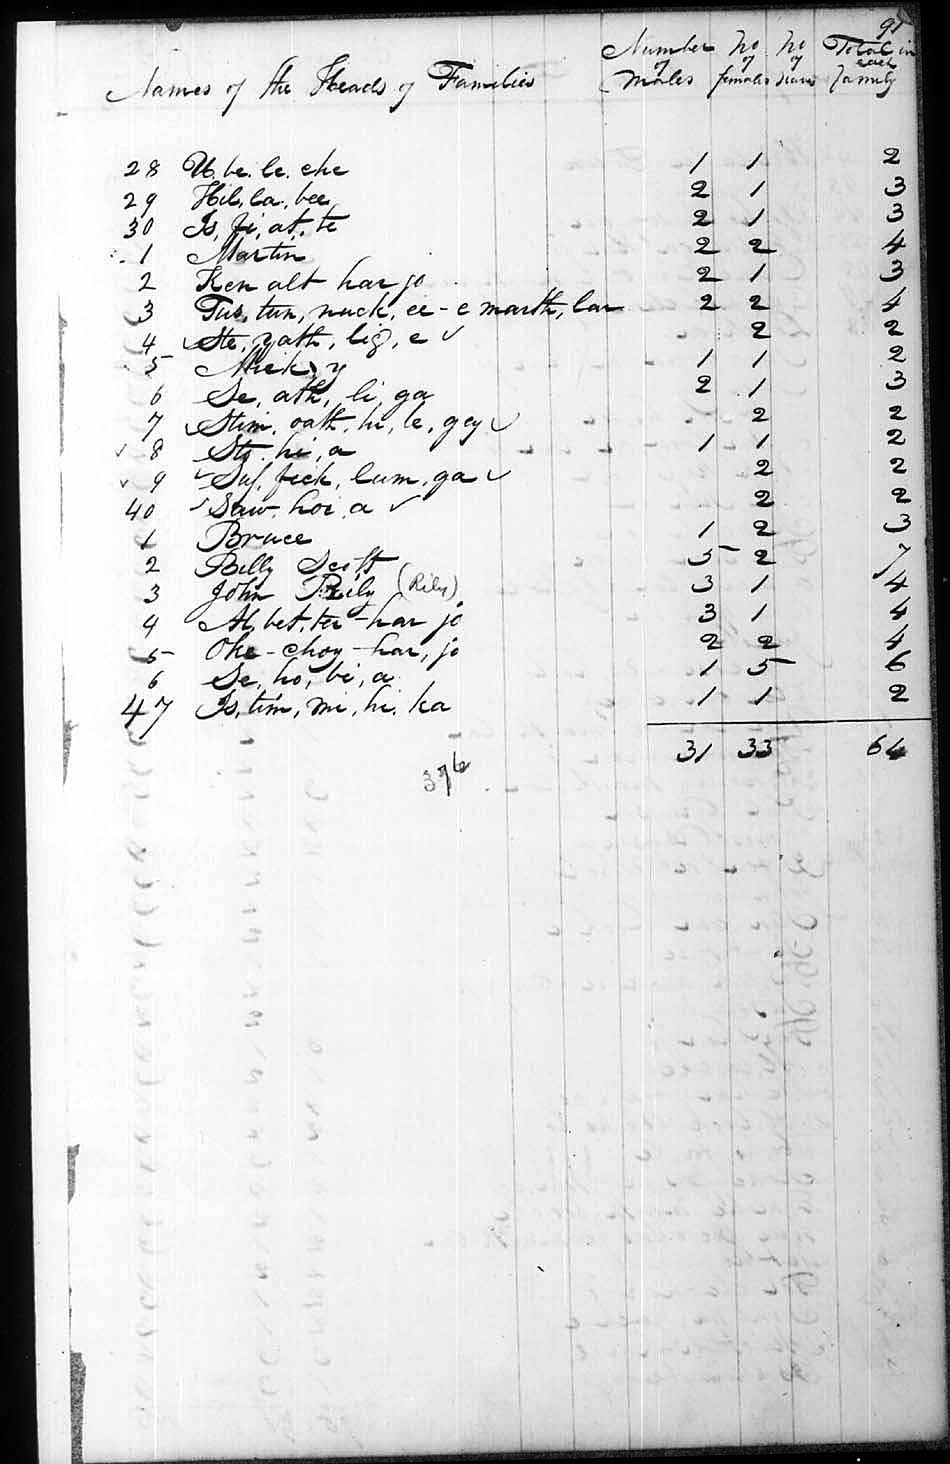 95
Names of the Heads of Families Number of males No of females No of slaves Total in each family
28 U. be. le. che 1 1 2
29 Hil, la, bee 2 1 3
30 Is, fi, at, te 2 1 3
1 Martin 2 2 4
2 Ken alt har jo 2 1 3
3 Tus, tun, nuck, ee - e marth, lar 2 2 4
4 ✓ Ste, yath, lig, e ✓ 2 2
5 Mick, y 1 1 2
6 Se, ath, li, ga 2 1 3
7 ✓ Stim, oath, hi, le, gey ✓ 2 2
✓ 8 Sto, hi, a 1 1 2
✓ 9 ✓ Suf, fick, lum, ga ✓ 2 2
40 ✓ Saw, hoi, a ✓ 2 2
1 Bruce 1 2 3
2 Billy Scott 5 2 7
3 John Rily (Rily) 3 1 4
4 Al, bet, ter - har jo 3 1 4
5 Oke - choy - har, jo 2 2 4
6 Se, ho, bi, a 1 5 6
47 Is, tim, mi, hi, ka 1 1 2
31 33 64
376